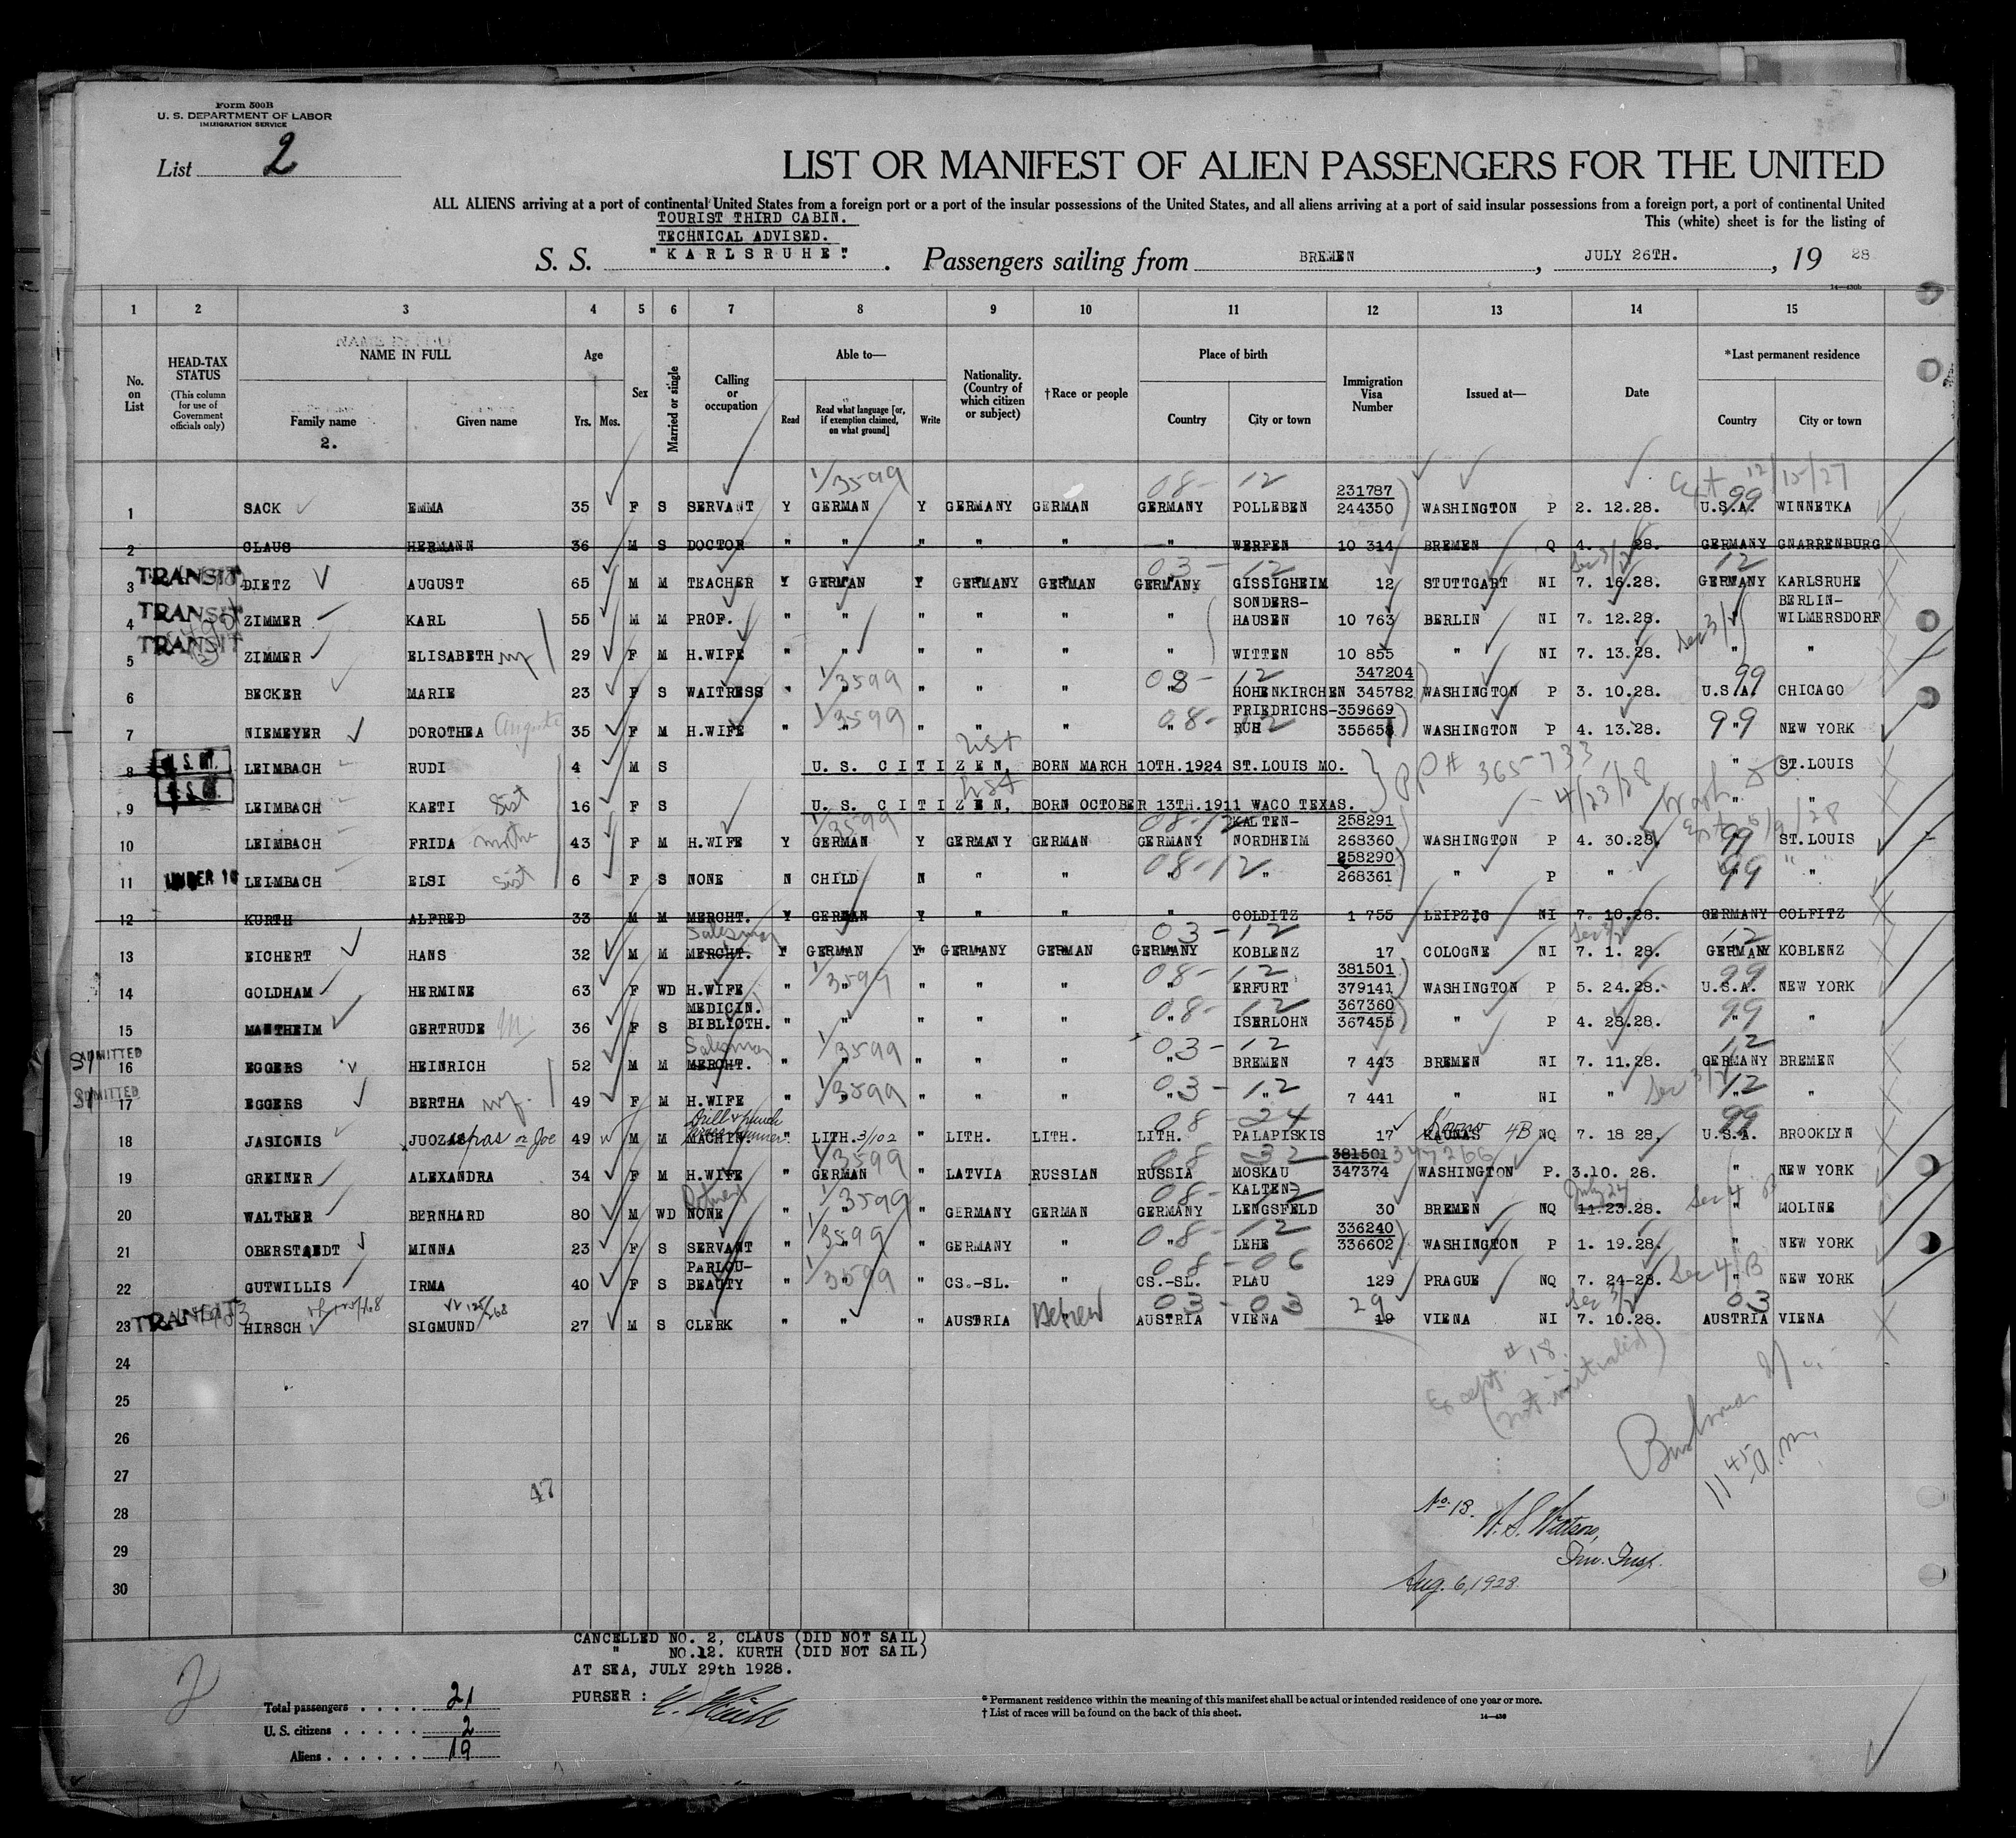 Form 500B
U. S. DEPARTMENT OF LABOR
IMMIGRATION SERVICE
List 2
LIST OR MANIFEST OF ALIEN PASSENGERS FOR THE UNITED
ALL ALIENS arriving at a port of continental United States from a foreign port or a port of the insular possessions of the United States, and all aliens arriving at a port of said insular possessions from a foreign port, a port of continental United
This (white) sheet is for the listing of
TOURIST THIRD CABIN.
TECHNICAL ADVISED.
S. S. "KARLSRUHE". Passengers sailing from BREMEN, JULY 26TH., 19 28
14—430b
1 2 3 4 5 6 7 8 9 10 11 12 13 14 15
No. on List
HEAD-TAX STATUS
(This column for use of Government officials only)
NAME IN FULL
Family name
2.
Given name
Age
Yrs. Mos.
Sex
Married or single
Calling or occupation
Able to—
Read
Read what language [or, if exemption claimed, on what ground]
Write
Nationality. (Country of which citizen or subject)
†Race or people
Place of birth
Country
City or town
Immigration Visa Number
Issued at—
Date
*Last permanent residence
Country
City or town
1/3599 08- 12 231787 Ext 12/15/27
1 SACK EMMA 35 F S SERVANT Y GERMAN Y GERMANY GERMAN GERMANY POLLEBEN 244350 WASHINGTON P 2. 12.28. U.S.A. 99 WINNETKA
2 CLAUS HERMANN 36 M S DOCTOR " " " " " " WERFEN 10 314 BREMEN Q 4. 28. GERMANY GNARRENBURG
03-12 Sec 3/2 12
3 TRANSIT DIETZ AUGUST 65 M M TEACHER Y GERMAN Y GERMANY GERMAN GERMANY GISSIGHEIM 12 STUTTGART NI 7. 16.28. GERMANY KARLSRUHE
4 TRANSIT ZIMMER KARL 55 M M PROF. " " " " " " SONDERS-HAUSEN 10 763 BERLIN NI 7. 12.28. " BERLIN-WILMERSDORF
5 TRANSIT ZIMMER ELISABETH 29 F M H.WIFE " " " " " WITTEN 10 855 " NI 7. 13.28. Sec 3/ " "
1/3599 08- 12 347204 99
6 BECKER MARIE 23 F S WAITRESS " " " " " " HOHENKIRCHEN 345782 WASHINGTON P 3. 10.28. U.S.A. CHICAGO
1/3599 08-12 FRIEDRICHS- 359669
7 NIEMEYER DOROTHEA Auguste 35 F M H.WIFE " " " " " " RUH 355658 WASHINGTON P 4. 13.28. 99 " NEW YORK
8 LEIMBACH RUDI 4 M S U. S. CITIZEN, BORN MARCH 10TH.1924 ST.LOUIS MO. PP# 365733 " ST.LOUIS
9 LEIMBACH KAETI Sist 16 F S U. S. CITIZEN, BORN OCTOBER 13TH.1911 WACO TEXAS. 4/23/28 Wash. " "
1/3599 08-12 KALTEN- 258291
10 LEIMBACH FRIDA mother 43 F M H.WIFE Y GERMAN Y GERMANY GERMAN GERMANY NORDHEIM 268360 WASHINGTON P 4. 30.28. 99 ST.LOUIS
08-12 258290
11 UNDER 16 LEIMBACH ELSI Sist 6 F S NONE N CHILD N " " " " 268361 " P " 99 " "
12 KURTH ALFRED 33 M M MERCHT. Y GERMAN Y " " " COLDITZ 1 755 LEIPZIG NI 7. 10.28. GERMANY COLFITZ
Salesman 03-12 12
13 EICHERT HANS 32 M M MERCHT. Y GERMAN Y GERMANY GERMAN GERMANY KOBLENZ 17 COLOGNE NI 7. 1. 28. GERMANY KOBLENZ
1/3599 08-12 381501 99
14 GOLDHAM HERMINE 63 F WD H.WIFE " " " " " " ERFURT 379141 WASHINGTON P 5. 24.28. U.S.A. NEW YORK
MEDICIN. 08-12 367360
15 MANTHEIM GERTRUDE 36 F S BIBLIOTH. " " " " " " ISERLOHN 367455 " P 4. 28.28. 99 " "
Salesman 1/3599 03-12 12
16 ADMITTED EGGERS HEINRICH 52 M M MERCHT. " " " " " " BREMEN 7 443 BREMEN NI 7. 11.28. GERMANY BREMEN
1/3599 03-12 Sec 3/2 12
17 ADMITTED EGGERS BERTHA 49 F M H.WIFE " " " " " " " 7 441 " NI " " "
Drill & punch 08 24 99
18 JASIONIS JUOZAS or Joe 49 M M MACHIN. " LITH. 3/102 " LITH. LITH. LITH. PALAPISKIS 17 KAUNAS 4B NQ 7. 18 28. U.S.A. BROOKLYN
1/3599 08 32 381501 347266
19 GREINER ALEXANDRA 34 F M H.WIFE " GERMAN " LATVIA RUSSIAN RUSSIA MOSKAU 347374 WASHINGTON P. 3.10. 28. " NEW YORK
1/3599 08-12 KALTEN- July 24 Sec 4
20 WALTHER BERNHARD 80 M WD NONE " " " GERMANY GERMAN GERMANY LENGSFELD 30 BREMEN NQ 11.23.28. " MOLINE
1/3599 08-12 336240
21 OBERSTAEDT MINNA 23 F S SERVANT " " " GERMANY " " LEHE 336602 WASHINGTON P 1. 19.28. " NEW YORK
PARLOU- 1/3599 08-06 Sec 4/B
22 GUTWILLIS IRMA 40 F S BEAUTY " " " CS.-SL. " CS.-SL. PLAU 129 PRAGUE NQ 7. 24-28. " NEW YORK
03-03 29 Sec 3/2 03
23 TRANSIT HIRSCH SIGMUND 27 M S CLERK " " " AUSTRIA Hebrew AUSTRIA VIENA 19 VIENA NI 7. 10.28. AUSTRIA VIENA
24
25
26
27
28
29
30
Except # 18.
(not initialed)
11 45 a.m.
47
No. 18. W. S. Watson,
Imm. Insp.
Aug. 6, 1928.
CANCELLED NO. 2, CLAUS (DID NOT SAIL)
" NO.12. KURTH (DID NOT SAIL)
AT SEA, JULY 29th 1928.
PURSER :
2
Total passengers . . . . 21
U. S. citizens . . . . . 2
Aliens . . . . . . 19
* Permanent residence within the meaning of this manifest shall be actual or intended residence of one year or more.
† List of races will be found on the back of this sheet.